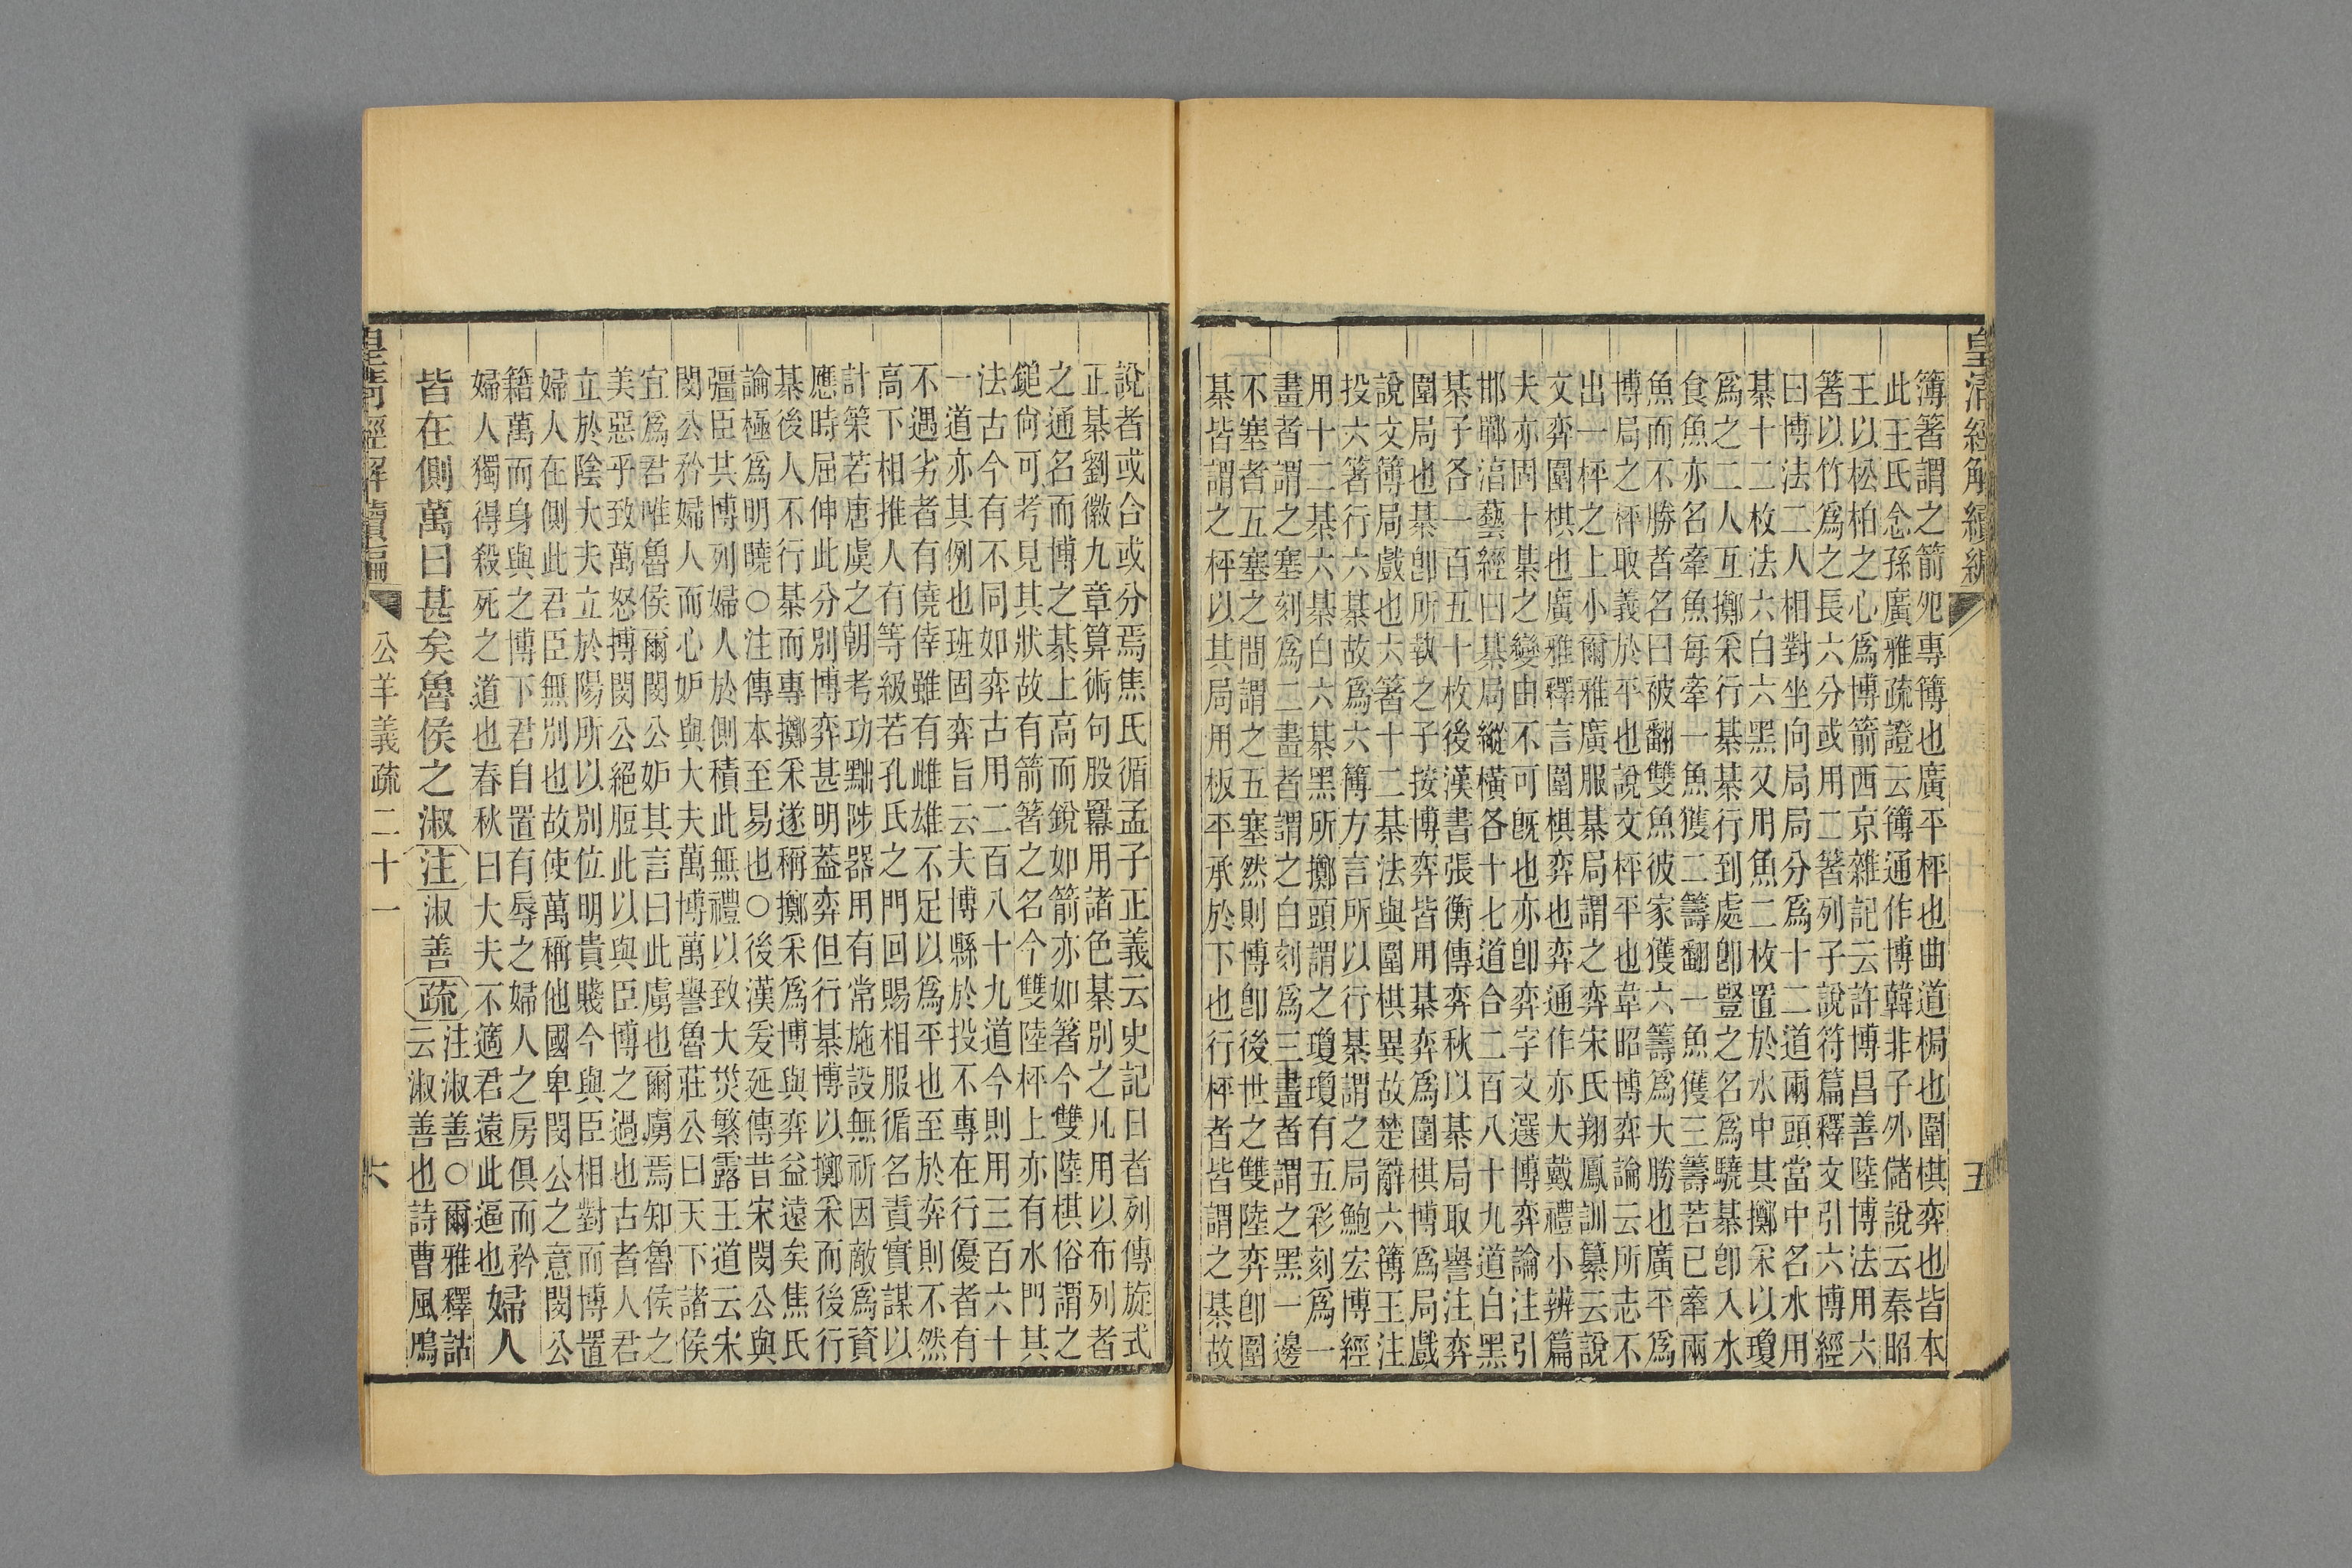 皇清經解續編
五
簿箸謂之箭夗專簿也廣平枰也曲道梮也圍棋弈也皆本
此王氏念孫廣雅疏證云簿通作博韓非子外儲說云秦昭
王以松柏之心爲博箭西京雜記云許博昌善陸博法用六
箸以竹爲之長六分或用二箸列子說符篇釋文引六博經
曰博法二人相對坐向局局分爲十二道兩頭當中名水用
棊十二枚法六白六黑又用魚二枚置於水中其擲采以瓊
爲之二人互擲采行棊棊行到處卽豎之名爲驍棊卽入水
食魚亦名牽魚每牽一魚獲二籌翻一魚獲三籌若已牽兩
魚而不勝者名曰被翻雙魚彼家獲六籌爲大勝也廣平爲
博局之枰取義於平也說文枰平也韋昭博弈論云所志不
出一枰之上小爾雅廣服棊局謂之弈宋氏翔鳳訓纂云說
文弈圍棋也廣雅釋言圍棋弈也弈通作亦大戴禮小辨篇
夫亦固十棊之變由不可旣也亦卽弈字文選博弈論注引
邯鄲湻藝經曰棊局縱橫各十七道合二百八十九道白黑
棊子各一百五十枚後漢書張衡傳弈秋以棊局取譽注弈
圍局也棊卽所執之子按博弈皆用棊弈爲圍棋博爲局戲
說文簿局戲也六箸十二棊法與圍棋異故楚辭六簿王注
投六箸行六棊故爲六簿方言所以行棊謂之局鮑宏博經
用十二棊六棊白六棊黑所擲頭謂之瓊瓊有五彩刻爲一
畫者謂之塞刻爲二畫者謂之白刻爲三畫者謂之黑一邊
不塞者五塞之間謂之五塞然則博卽後世之雙陸弈卽圍
棊皆謂之枰以其局用板平承於下也行枰者皆謂之棊故
說者或合或分焉焦氏循孟子正義云史記日者列傳旋式
正棊劉徽九章算術句股羃用諸色棊別之凡用以布列者
之通名而博之棊上高而銳如箭亦如箸今雙陸棋俗謂之
鎚尙可考見其狀故有箭箸之名今雙陸枰上亦有水門其
法古今有不同如弈古用二百八十九道今則用三百六十
一道亦其例也班固弈旨云夫博縣於投不專在行優者有
不遇劣者有僥倖雖有雌雄不足以爲平也至於弈則不然
高下相推人有等級若孔氏之門回賜相服循名責實謀以
計策若唐虞之朝考功黜陟器用有常施設無祈因敵爲資
應時屈伸此分別博弈甚明蓋弈但行棊博以擲采而後行
棊後人不行棊而專擲采遂稱擲采爲博博與弈益遠矣焦氏
論極爲明曉○注傳本至易也○後漢爰延傳昔宋閔公與
彊臣共博列婦人於側積此無禮以致大災繁露王道云宋
閔公矜婦人而心妒與大夫萬博萬譽魯莊公曰天下諸侯
宜爲君唯魯侯爾閔公妒其言曰此虜也爾虜焉知魯侯之
美惡乎致萬怒搏閔公絕脰此以與臣博之過也古者人君
立於陰大夫立於陽所以別位明貴賤今與臣相對而博置
婦人在側此君臣無別也故使萬稱他國卑閔公之意閔公
籍萬而身與之博下君自置有辱之婦人之房俱而矜
婦人獨得殺死之道也春秋曰大夫不適君遠此逼也婦人
皆在側萬曰甚矣魯侯之淑注淑善疏注淑善○爾雅釋詁
云淑善也詩曹風鳲
皇清經解續編
公羊義疏二十一
六